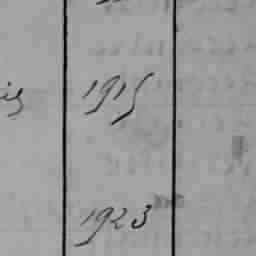 1915
1923